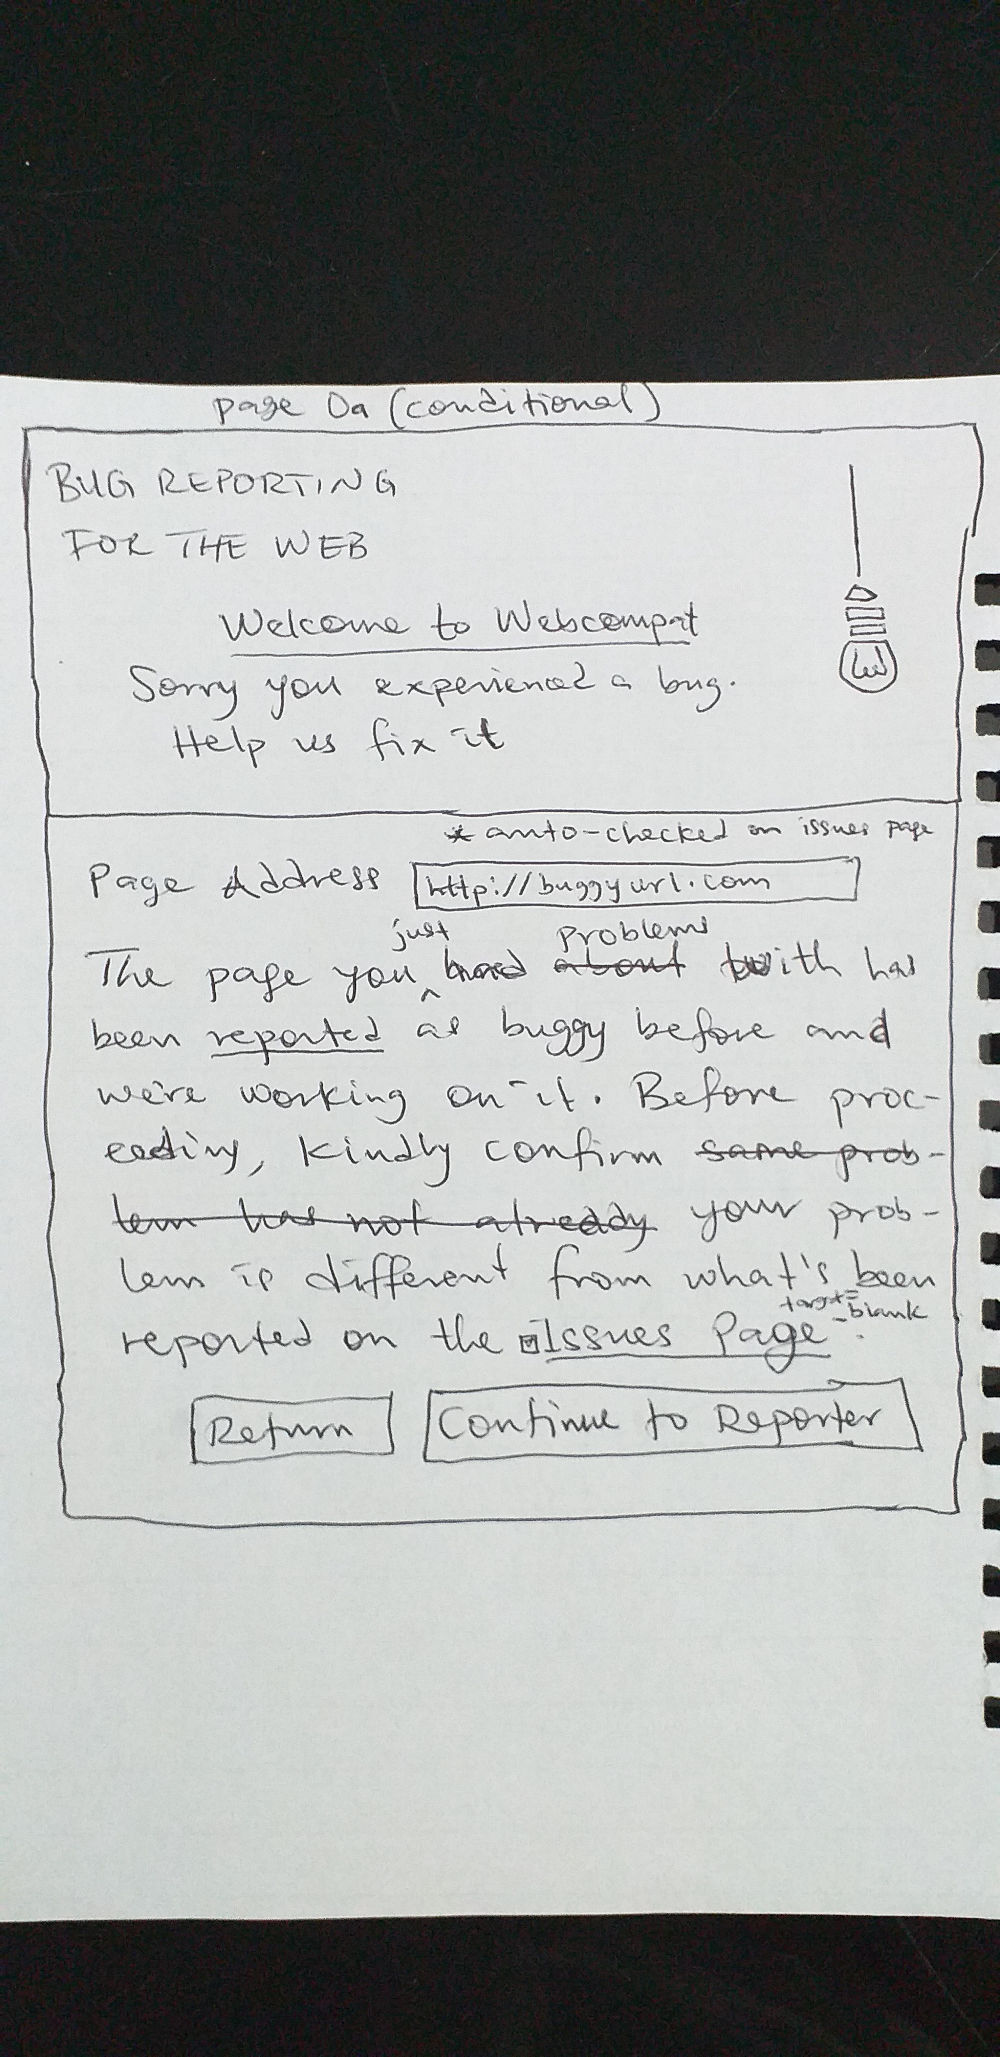 page 0a (conditional)
BUG REPORTING
FOR THE WEB
Welcome to Webcompat
Sorry you experienced a bug.
Help us fix it
* auto-checked on issues page
Page Address http://buggyurl.com
just problems
The page you had about with has
been reported as buggy before and
we're working on it. Before proc-
eeding, kindly confirm same prob-
lem has not already your prob-
lem is different from what's been
target=_blank
reported on the Issues Page.
Return Continue to Reporter